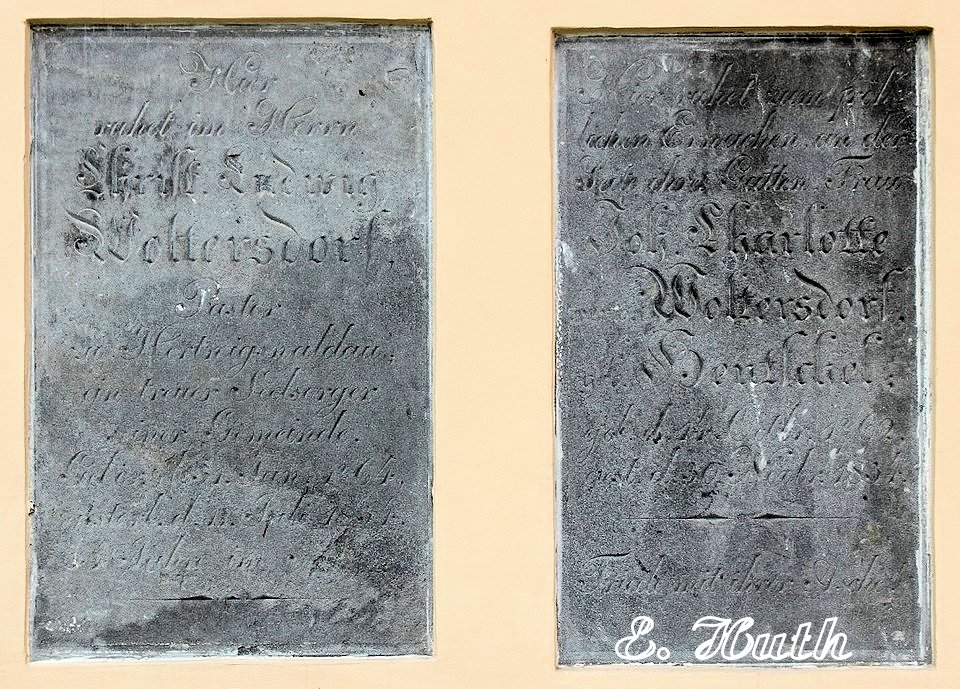 Hier
ruhet im Herrn
Christ. Ludwig
Woltersdorf,
Pastor
zu Hertwigswaldau,
ein treuer Seelsorger
seiner Gemeinde.
Jan.
d. 11. Apr.
Jahre im
Hier ruhet zum fröh-
lichen Erwachen, an der
Seite ihres Gatten, Frau
Joh. Charlotte
Woltersdorf,
Hentschel,
geb. d. 14. Octbr.
gest. d. 30.
Friede mit ihrer Asche
E. Huth